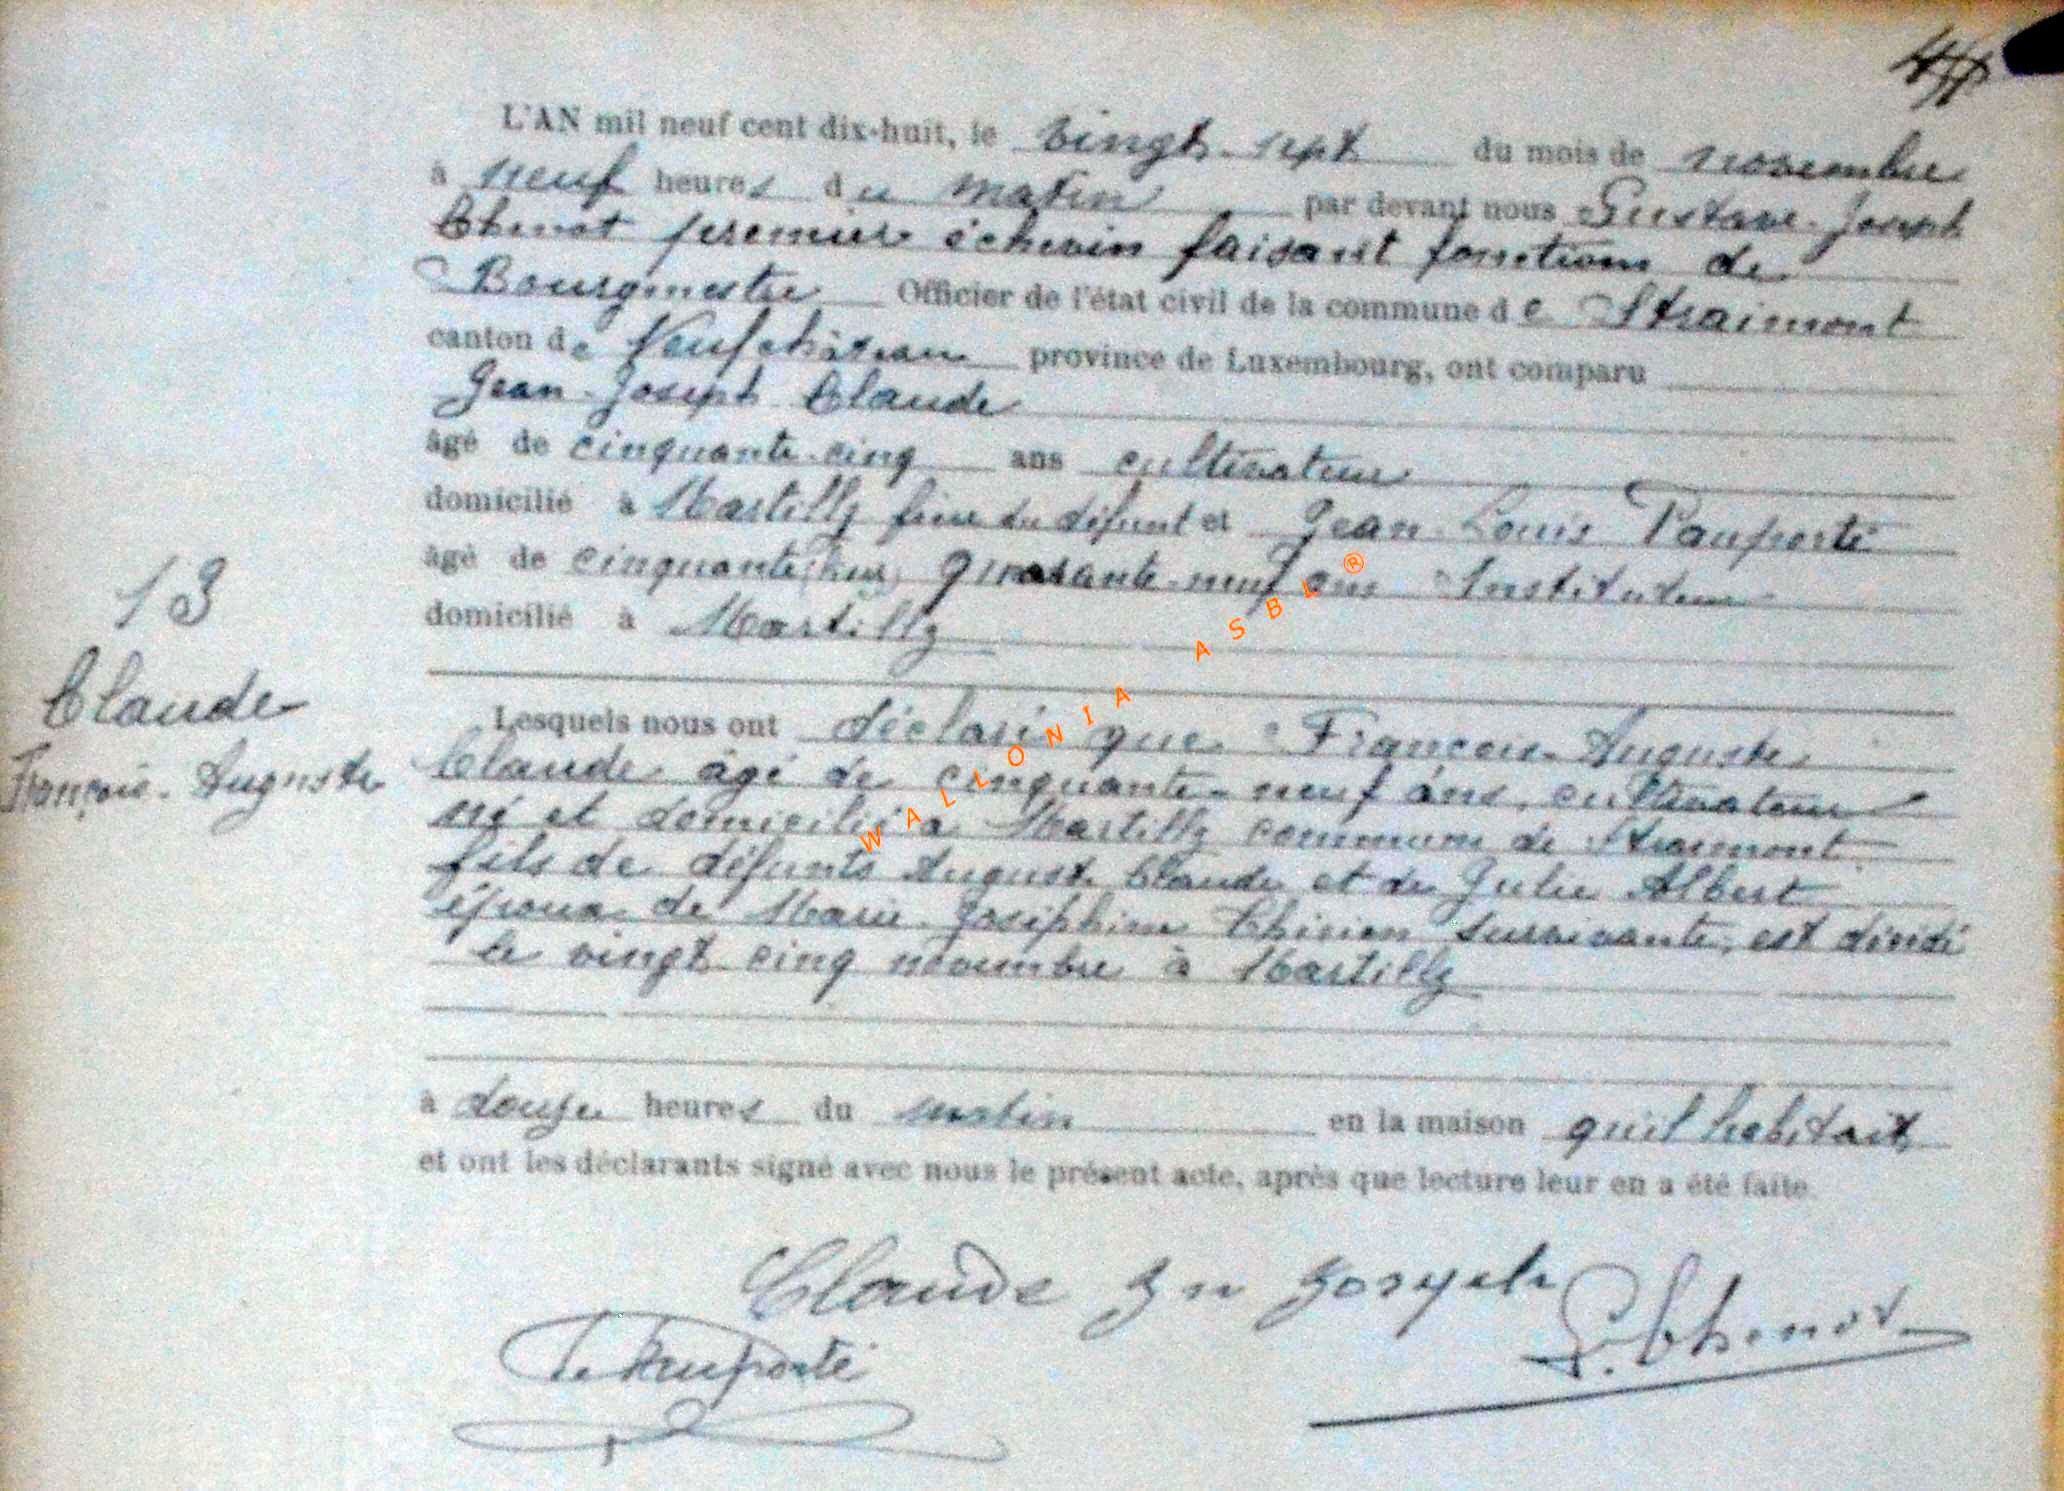 L'AN mil neuf cent dix-huit, le vingt-sept du mois de novembre
à neuf heures du matin par devant nous Gustave-Joseph
Chenot premier échevin faisant fonctions de
Bourgmestre Officier de l'état civil de la commune de Straimont
canton de Neufchâteau province de Luxembourg, ont comparu
Jean-Joseph Claude
âgé de cinquante-cinq ans cultivateur
domicilié à Martilly frère du défunt et Jean-Louis Pauporté
âgé de cinquante quarante-neuf ans Instituteur
domicilié à Martilly
13
Claude
François-Auguste
Lesquels nous ont déclaré que François-Auguste
Claude âgé de cinquante-neuf ans, cultivateur
né et domicilié à Martilly commune de Straimont
fils de défunts Auguste Claude et de Julie Albert
époux de Marie-Joséphine survivante, est décédé
le vingt-cinq novembre à Martilly
à douze heures du matin en la maison qu'il habitait
et ont les déclarants signé avec nous le présent acte, après que lecture leur en a été faite.
Claude Jn Joseph
Pauporté
G. Chenot
WALLONIA ASBL ®